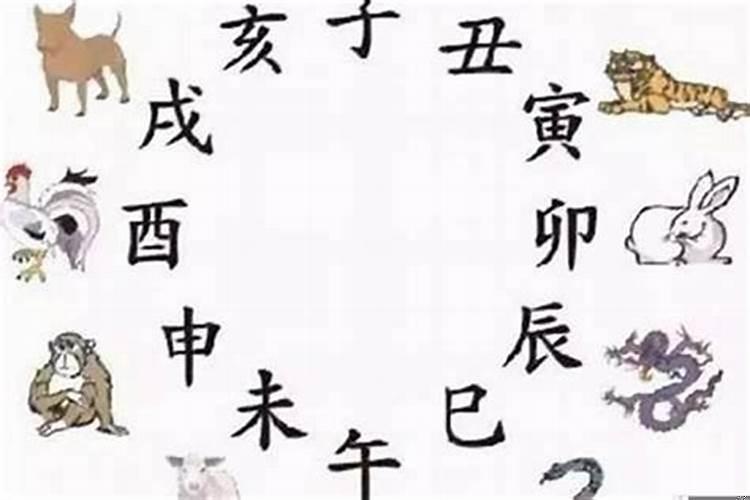 子
丑
寅
卯
辰
巳
午
未
申
酉
戌
亥